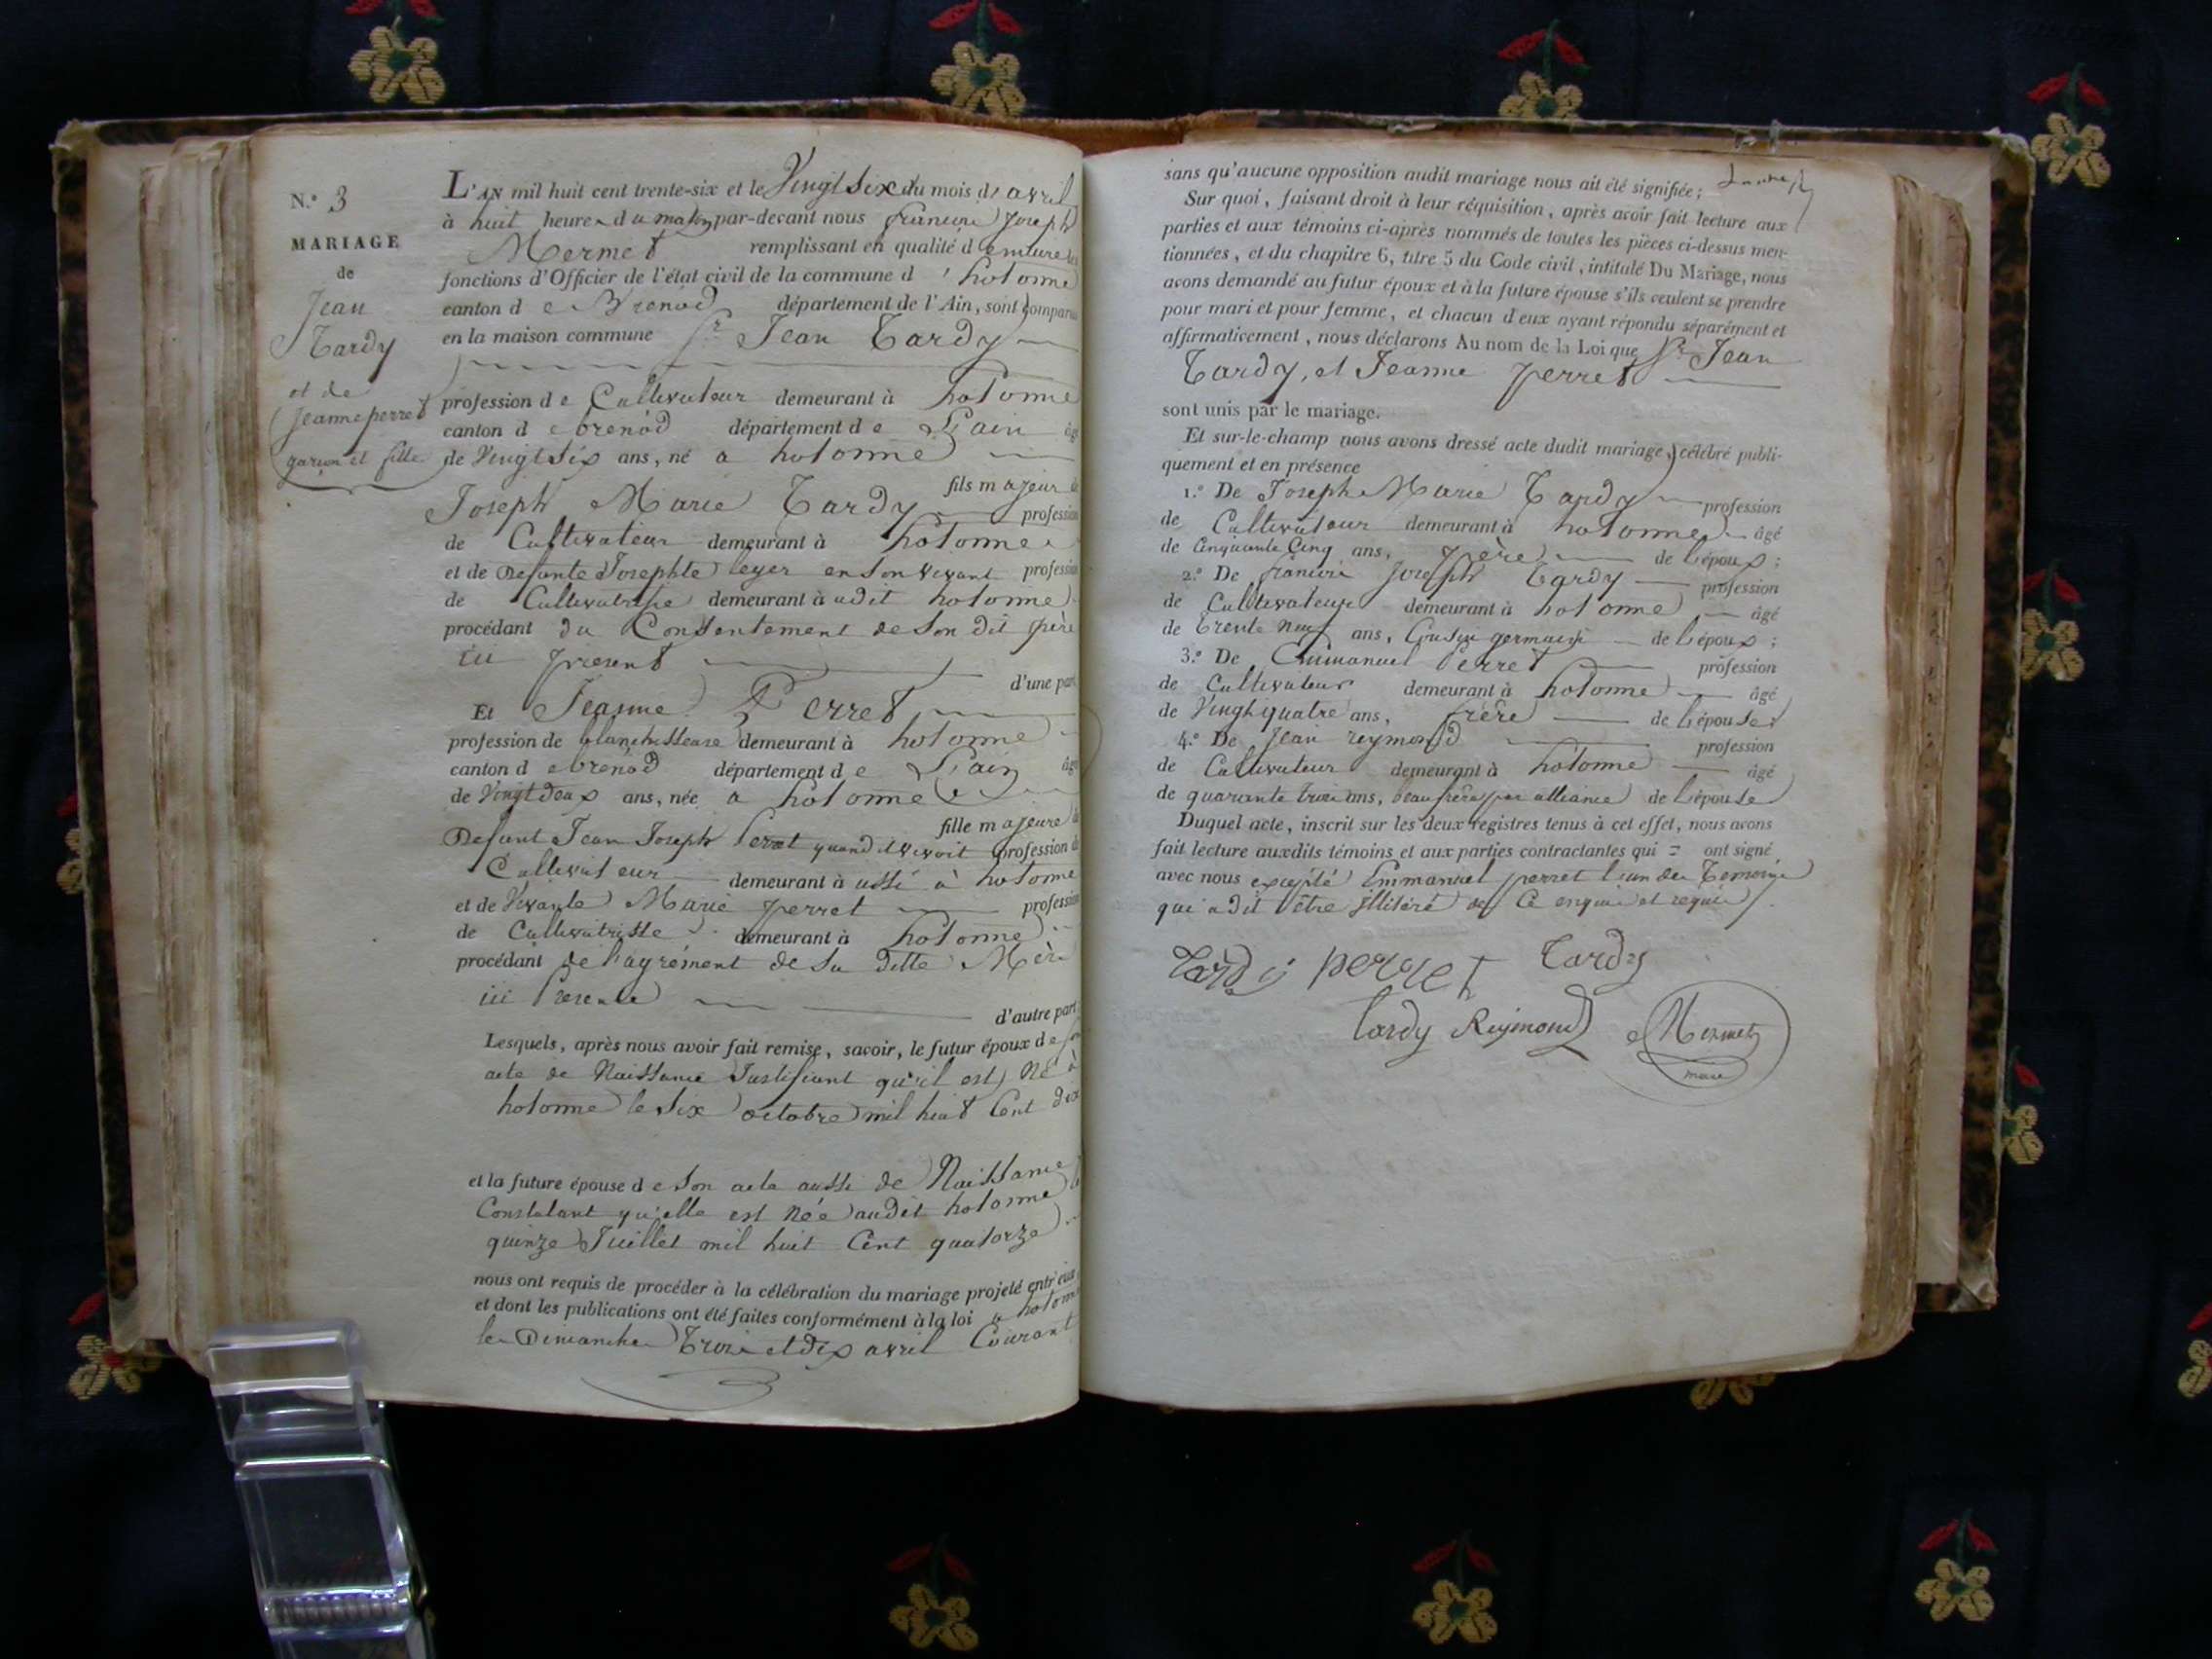 N.º 3
MARIAGE
de
Jean
Tardy
et de
Jeanne perret
garçon et fille
L'AN mil huit cent trente-six et le Vingt Six du mois d'avril
à huit heures du matin par-devant nous françois Joseph
Mermet remplissant en qualité de maire les
fonctions d'Officier de l'état civil de la commune d'hotonne
canton de Brenod département de l'Ain, sont comparus
en la maison commune Sr. Jean Tardy
profession de Cultivateur demeurant à hotonne
canton de brenod département de L'ain âgé
de Vingt Six ans, né a hotonne
fils majeur de
Joseph Marie Tardy profession
de Cultivateur demeurant à hotonne
et de Defunte Josephte leyer en Son vivant profession
de Cultivatrise demeurant à udit hotonne
procédant du Consentement de Son dit père
ici present
d'une part
Et Jeanne Perret
profession de blanchisseuse demeurant à hotonne
canton de brenod département de L'ain âgée
de Vingt deux ans, née a hotonne
fille majeure de
Defunt Jean Joseph Perret quand il vivoit profession de
Cultivateur demeurant à ussi à hotonne
et de Vivante Marie perret profession
de Cultivatrisse demeurant à hotonne
procédant de l'agrément de Sa ditte Mère
ici Presente
d'autre part
Lesquels, après nous avoir fait remise, savoir, le futur époux de son
acte de Naissance Justifiant qu'il est Né à
hotonne le Six octobre mil huit Cent dix
et la future épouse de Son acte aussi de Naissance
Constatant qu'elle est Née audit hotonne le
quinze Juillet mil huit Cent quatorze
nous ont requis de procéder à la célébration du mariage projeté entr'eux
et dont les publications ont été faites conformément à la loi à hotonne
les Dimanches Trois et dix avril Courant
sans qu'aucune opposition audit mariage nous ait été signifiée;
Sur quoi, faisant droit à leur réquisition, après avoir fait lecture aux
parties et aux témoins ci-après nommés de toutes les pièces ci-dessus men-
tionnées, et du chapitre 6, titre 5 du Code civil, intitulé Du Mariage, nous
avons demandé au futur époux et à la future épouse s'ils veulent se prendre
pour mari et pour femme, et chacun d'eux ayant répondu séparément et
affirmativement, nous déclarons Au nom de la Loi que Sr. Jean
Tardy, et Jeanne perret
sont unis par le mariage.
Et sur-le-champ nous avons dressé acte dudit mariage, célébré publi-
quement et en présence
1.º De Joseph Marie Tardy profession
de Cultivateur demeurant à hotonne âgé
de Cinquante Cinq ans, père de l'époux;
2.º De françois Joseph Tardy profession
de Cultivateur demeurant à hotonne âgé
de trente neuf ans, Cousin germain de l'époux;
3.º De Emmanuel Perret profession
de Cultivateur demeurant à hotonne âgé
de Vingt quatre ans, frère de l'épouse;
4.º De Jean reymond profession
de Cultivateur demeurant à hotonne âgé
de quarante trois ans, beau frère par alliance de l'épouse
Duquel acte, inscrit sur les deux registres tenus à cet effet, nous avons
fait lecture auxdits témoins et aux parties contractantes qui = ont signé
avec nous excepté Emmanuel perret l'un des Temoins
qui a dit être illitéré de Ce enquis et requis
Tardy perret Tardy
tardy Reymond Mermet
maire